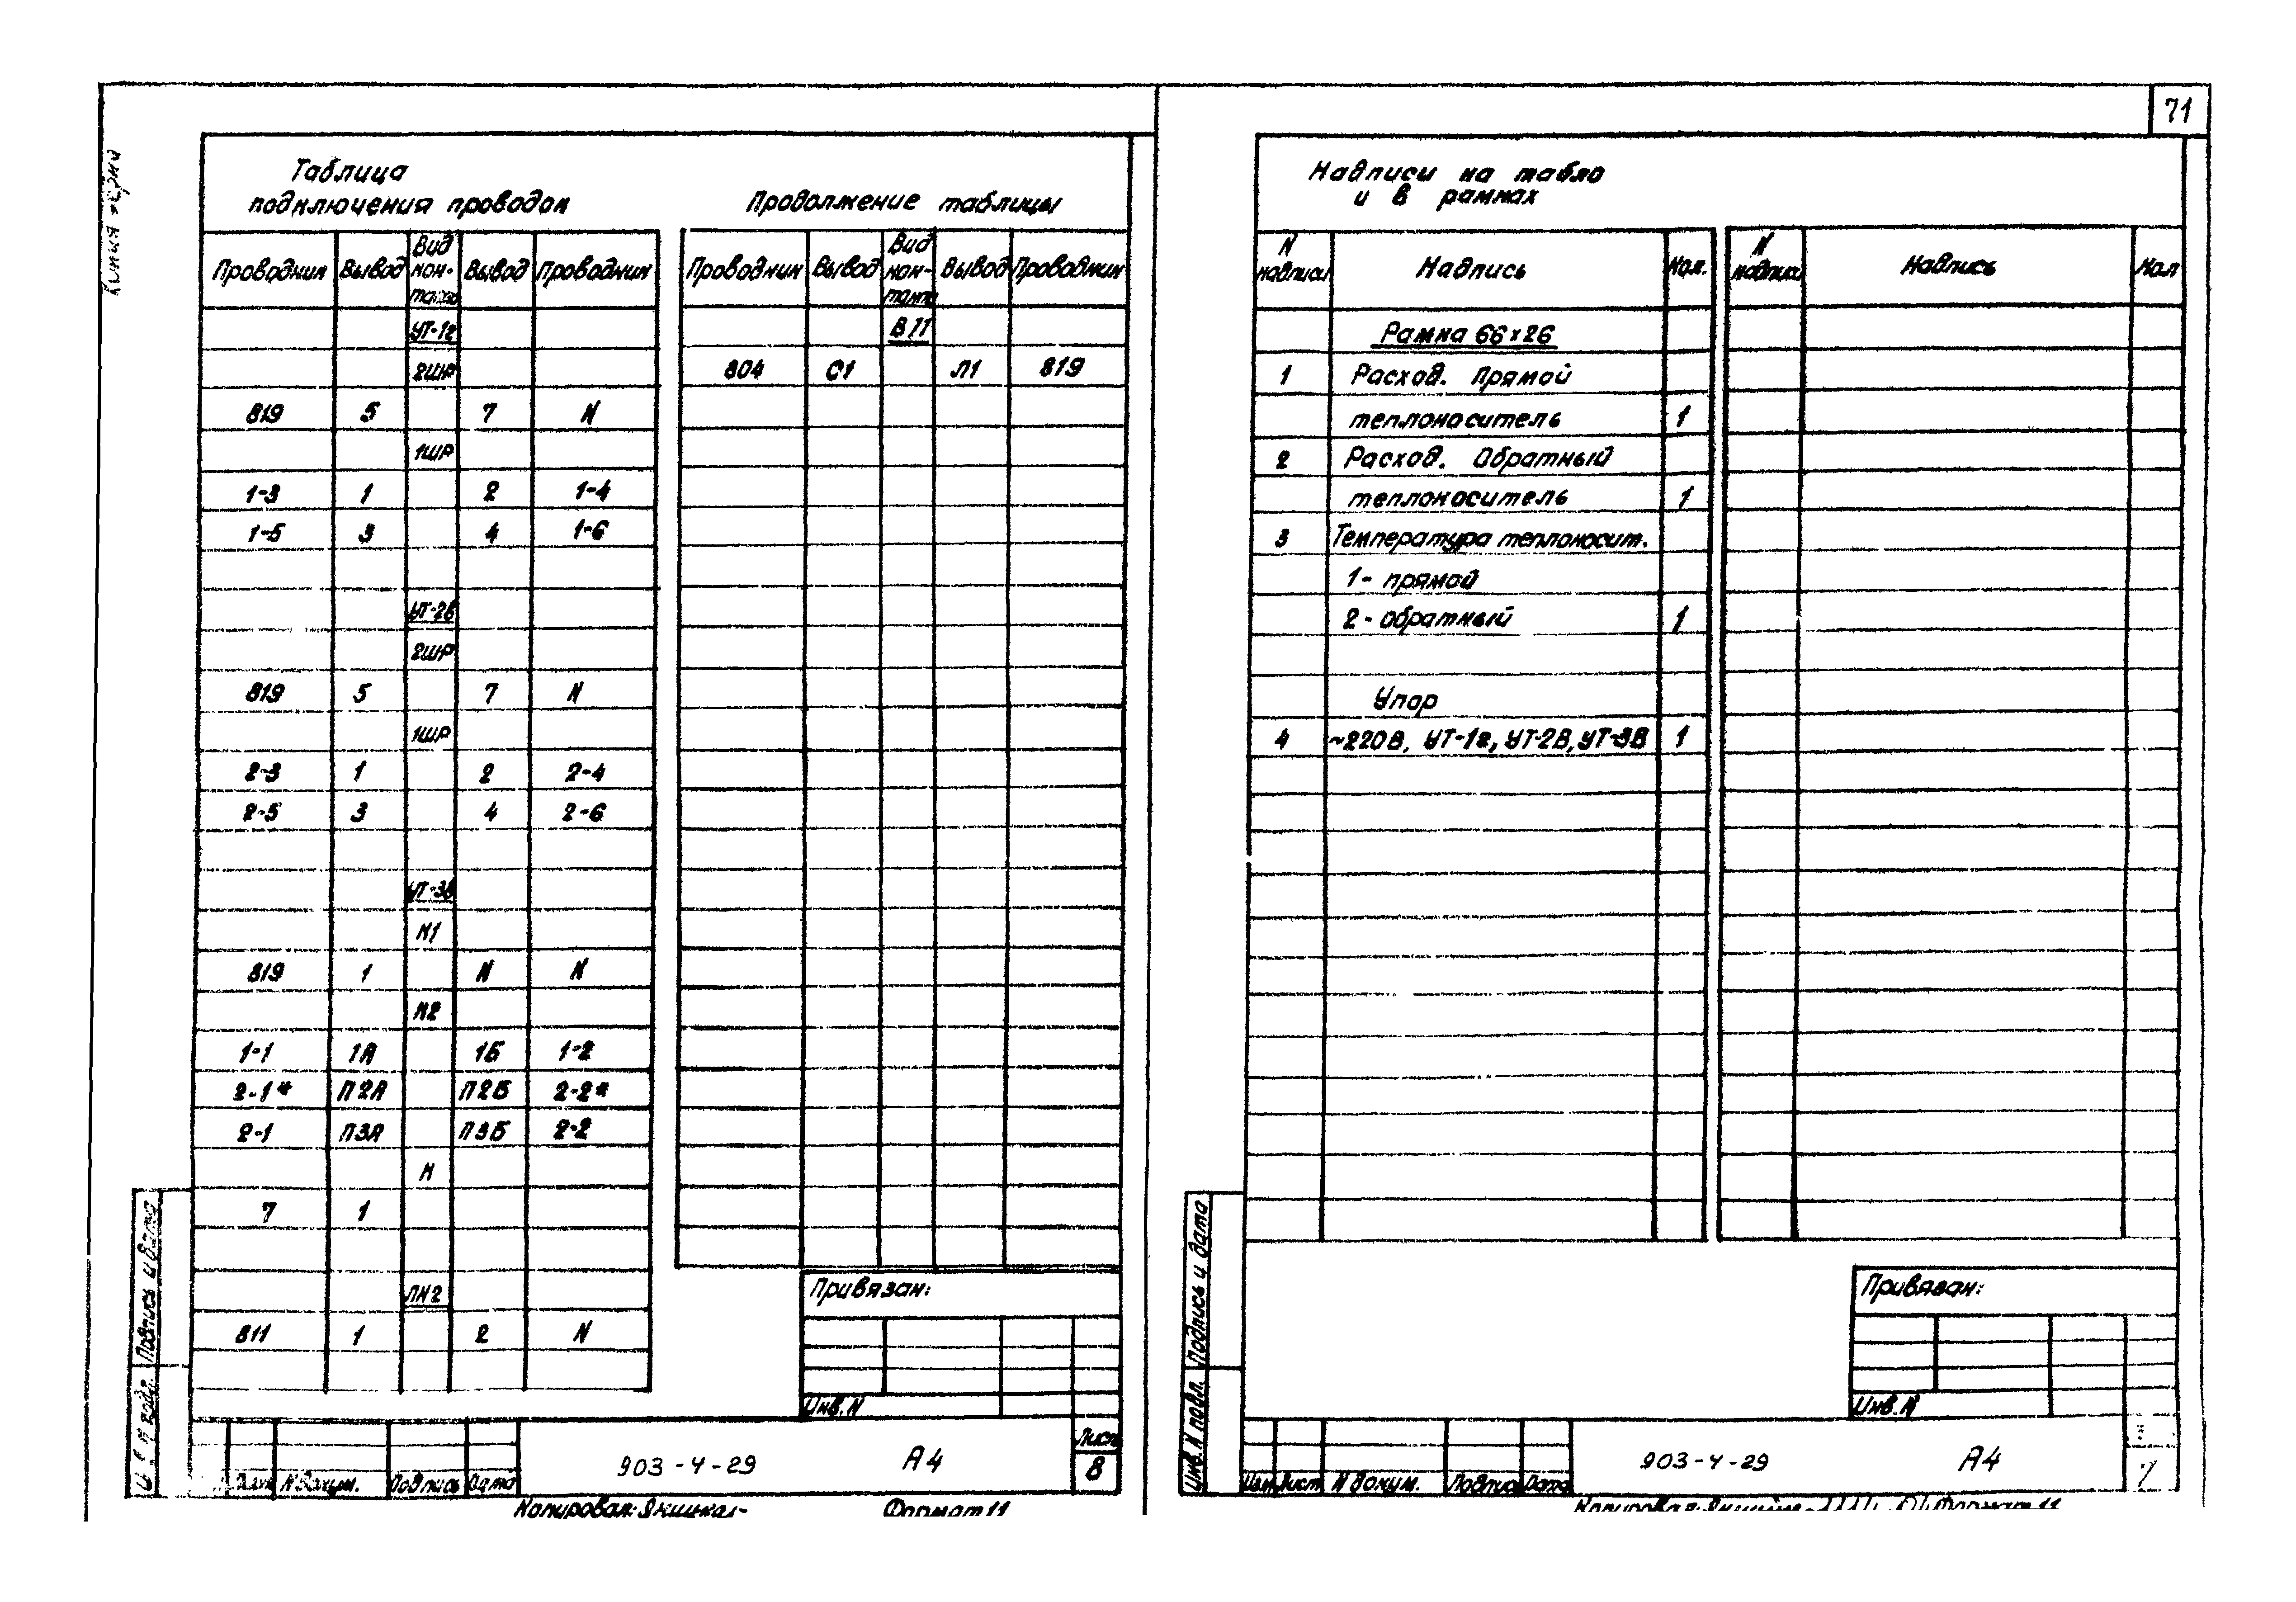 71
Таблица
подключения проводом
Проводник Вывод Вид кон- Вывод Проводник
УТ-1г
2ШР
819 5 7 N
1ШР
1-3 1 2 1-4
1-5 3 4 1-6
УТ-2В
2ШР
819 5 7 N
1ШР
2-3 1 2 2-4
2-5 3 4 2-6
УТ-3В
К1
819 1 N N
К2
1-1 1А 1Б 1-2
2-1* П2А П2Б 2-2*
2-1 П3А П3Б 2-2
К
7 1
ЛК2
811 1 2 N
Продолжение таблицы
Проводник Вывод Вид кон-такта Вывод Проводник
В11
804 С1 Л1 819
Привязан:
Инв. N
N докум. Подпись Дата
903-4-29
А4
Лист
8
Копировал:
Формат 11
Подпись и дата
Надписи на табло
и в рамках
N надписи Надпись Кол. N надписи Надпись Кол
Рамка 66х26
1 Расход. Прямой
теплоноситель 1
2 Расход. Обратный
теплоноситель 1
3 Температура теплоносит.
1- прямой
2- обратный 1
Упор
4 ~220В, УТ-1г, УТ-2В, УТ-3В 1
Привязан:
Инв. N
Изм Лист N докум. Подпись Дата
903-4-29
А4
Копировал:
Формат 11
Инв. N подл. Подпись и дата